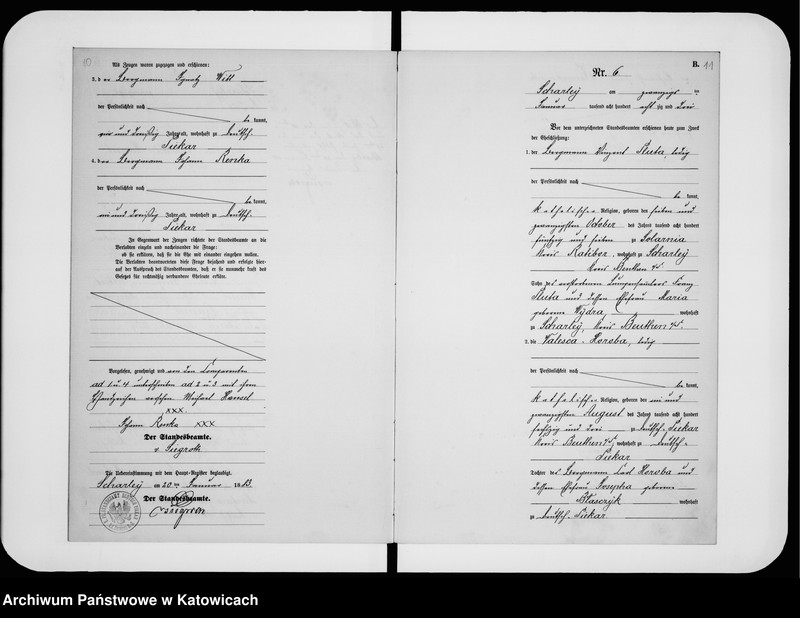 Als Zeugen waren zugezogen und erschienen:
3. der Bergmann Ignatz Will
der Persönlichkeit nach
be kannt,
und dreißig Jahre alt, wohnhaft zu Deutsch-
Piekar
4. der Bergmann Johann Renka
der Persönlichkeit nach
be kannt,
und dreißig Jahre alt, wohnhaft zu Deutsch-
Piekar
In Gegenwart der Zeugen richtete der Standesbeamte an die
Verlobten einzeln und nacheinander die Frage:
ob sie erklären, daß sie die Ehe mit einander eingehen wollen.
Die Verlobten beantworteten diese Frage bejahend und erfolgte hier-
auf der Ausspruch des Standesbeamten, daß er sie nunmehr kraft des
Gesetzes für rechtmäßig verbundene Eheleute erkläre.
Vorgelesen, genehmigt und von den Comparenten
ad 1 u 4 unterschrieben ad 2 u 3 mit ihrem
Handzeichen versehen
xxx.
Johann Renka xxx
Der Standesbeamte.
v. Siegroth
Die Uebereinstimmung mit dem Haupt-Register beglaubigt.
Scharley am 20 ten Januar 1883.
Der Standesbeamte.
v Siegroth
B.
11
Nr. 6
Scharley am zwanzigsten
Januar tausend acht hundert acht zig und drei
Vor dem unterzeichneten Standesbeamten erschienen heute zum Zweck
der Eheschließung:
1. der Bergmann Vinzent Pluta, ledig
der Persönlichkeit nach
be kannt,
katholischer Religion, geboren den sieben und
zwanzigsten October des Jahres tausend acht hundert
fünfzig und sieben zu Solarnia
Kreis Ratibor, wohnhaft zu Scharley
Kreis Beuthen O/S.
Sohn des verstorbenen Lumpensammlers Franz
Pluta und dessen Ehefrau Maria
geborene Wydra, wohnhaft
zu Scharley, Kreis Beuthen O/S.
2. die Valesca Horoba, ledig
der Persönlichkeit nach
be kannt,
katholischer Religion, geboren den ein und
zwanzigsten August des Jahres tausend acht hundert
sechszig und drei zu Deutsch-Piekar
Kreis Beuthen O/S, wohnhaft zu Deutsch-
Piekar
Tochter des Bergmann Horoba und
dessen Ehefrau Josepha geborene
Blaszczyk wohnhaft
zu Deutsch-Piekar
Archiwum Państwowe w Katowicach